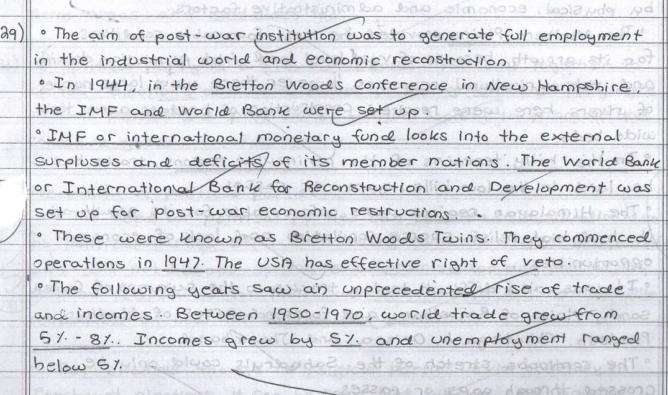 29) • The aim of post-war institution was to generate full employment
in the industrial world and economic reconstruction.
• In 1944, in the Bretton Woods Conference in New Hampshire,
the IMF and World Bank were set up.
• IMF or international monetary fund looks into the external
surpluses and deficits of its member nations. The World Bank
or International Bank for Reconstruction and Development was
set up for post-war economic restructions.
• These were known as Bretton Woods Twins. They commenced
operations in 1947. The USA has effective right of veto.
• The following years saw an unprecedented rise of trade
and incomes. Between 1950-1970, world trade grew from
5% - 8%. Incomes grew by 5% and unemployment ranged
below 5%.